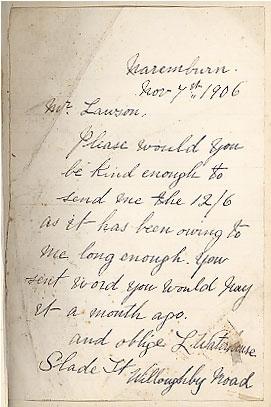 Naremburn.
Nov 7st 1906
Mr. Lawson,
Please would you
be kind enough to
send me the 12/6
as it has been owing to
me, long enough. You
sent word you would pay
it a month ago.
and oblige L. Waterhouse
Slade St Willoughby Road